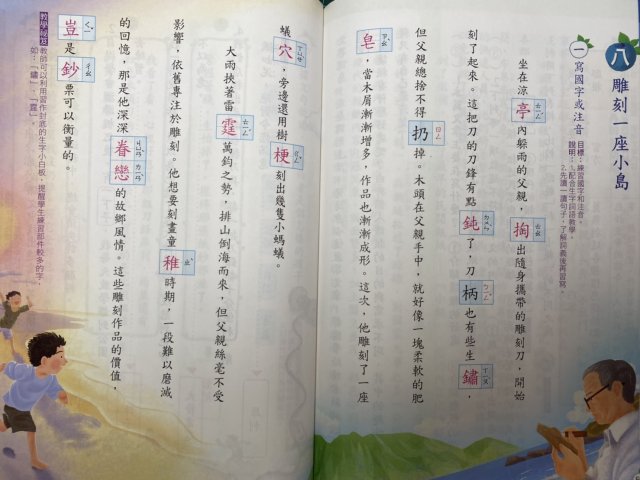 八 雕刻一座小島
一 寫國字或注音
目標：練習國字和注音。
說明：1.配合生字詞語教學。
2.先讀一讀句子，了解詞義後再習寫。
坐在涼亭ㄊㄧㄥˊ內躲雨的父親，掏ㄊㄠ出隨身攜帶的雕刻刀，開始
刻了起來。這把刀的刀鋒有點鈍ㄉㄨㄣˋ了，刀柄ㄅㄧㄥˇ也有些生鏽ㄒㄧㄡˋ，
但父親總捨不得扔ㄖㄥ掉。木頭在父親手中，就好像一塊柔軟的肥
皂ㄗㄠˋ，當木屑漸漸增多，作品也漸漸成形。這次，他雕刻了一座
蟻穴ㄒㄩㄝˋ，旁邊還用樹梗ㄍㄥˇ刻出幾隻小螞蟻。
大雨挾著雷霆ㄊㄧㄥˊ萬鈞之勢，排山倒海而來，但父親絲毫不受
影響，依舊專注於雕刻。他想要刻畫童稚ㄓˋ時期，一段難以磨滅
的回憶，那是他深深眷ㄐㄩㄢˋ戀ㄌㄧㄢˋ的故鄉風情。這些雕刻作品的價值，
豈ㄑㄧˇ是鈔ㄔㄠ票可以衡量的。
教學祕技
教師可以利用習作封底的生字小白板，提醒學生練習部件較多的字，
如：「鏽」、「霆」。